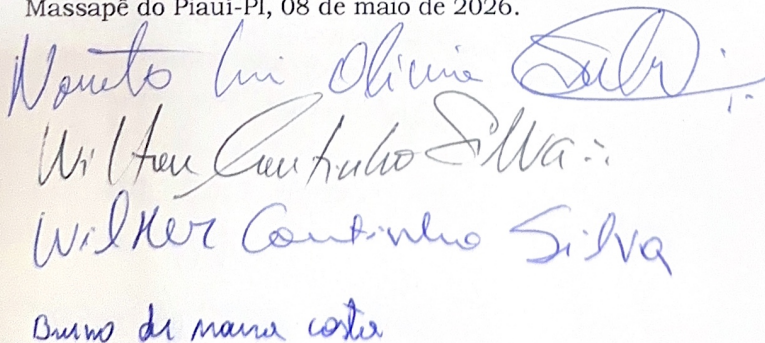 Massapê do Piauí-PI, 08 de maio de 2026.
Silva
Wilton Coutinho Silva
Wilker Coutinho Silva
Bruno de moura costa